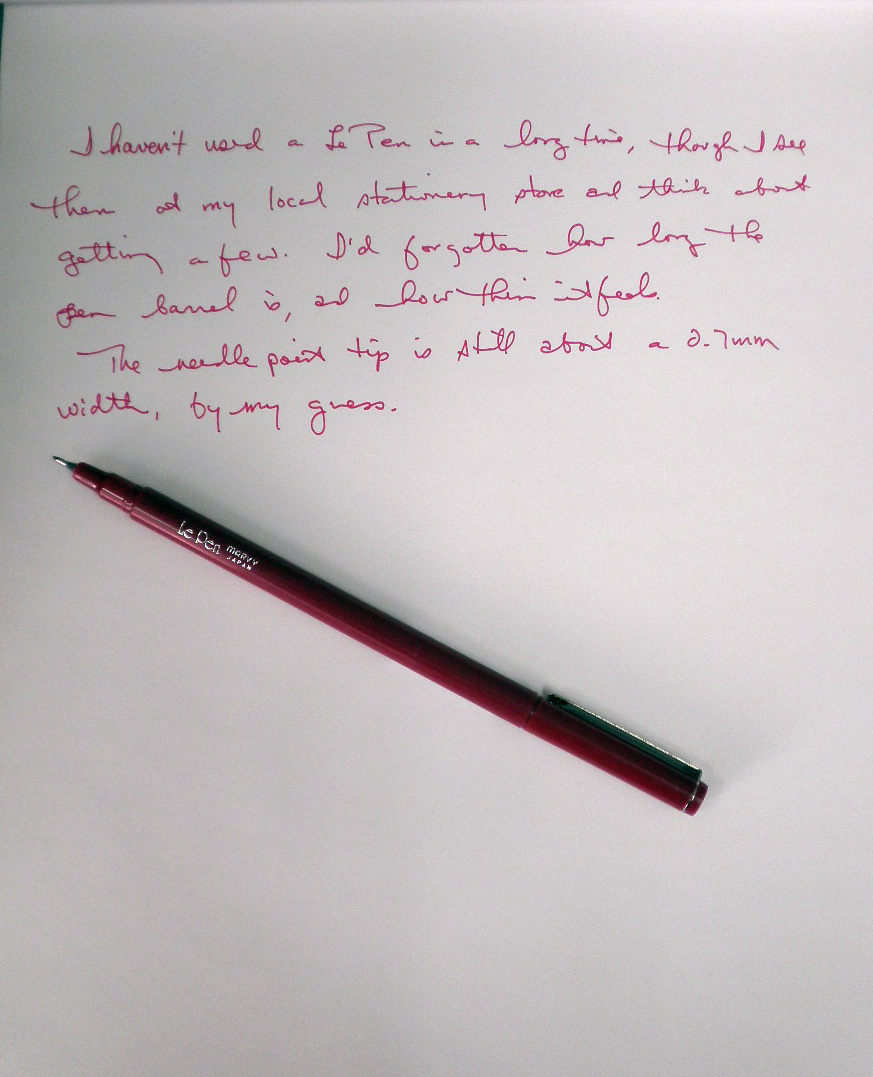 I haven't used a Le Pen in a long time, though I see
them at my local stationery store and think about
getting a few. I'd forgotten how long the
pen barrel is, and how thin it feels.
The needle point tip is still about a 0.7mm
width, by my guess.
Le Pen MARVY
JAPAN